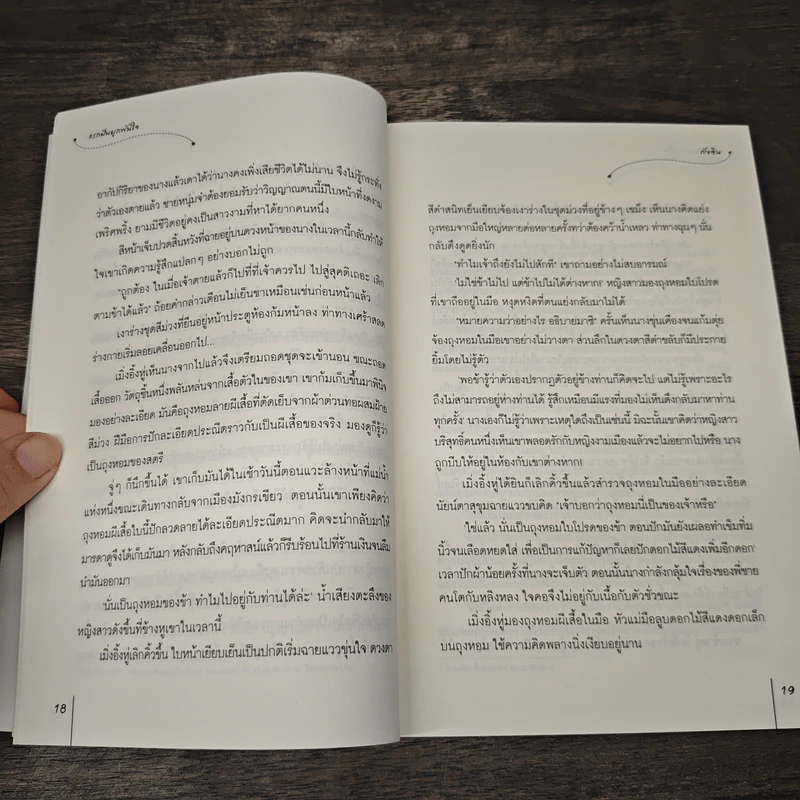 อากัปกิริยาของนางแล้วเดาได้ว่านางคงเพิ่งเสียชีวิตได้ไม่นาน จึงไม่รู้กระทั่ง
ว่าตัวเองตายแล้ว ชายหนุ่มจำต้องยอมรับว่าวิญญาณตนนี้มีใบหน้าที่งดงาม
เพริศพริ้ง ยามมีชีวิตอยู่คงเป็นสาวงามที่หาได้ยากคนหนึ่ง
สีหน้าเจ็บปวดสิ้นหวังที่ฉายอยู่บนดวงหน้าของนางในเวลานี้กลับทำให้
ใจเขาเกิดความรู้สึกแปลกๆ อย่างบอกไม่ถูก
"ถูกต้อง ในเมื่อเจ้าตายแล้วก็ไปที่ที่เจ้าควรไป ไปสู่สุคติเถอะ เลิก
ตามข้าได้แล้ว" ถ้อยคำกล่าวเตือนไม่เย็นชาเหมือนเช่นก่อนหน้าแล้ว
เงาร่างชุดสีม่วงที่ยืนอยู่หน้าประตูห้องก้มหน้าลง ท่าทางเศร้าสลด
ร่างกายเริ่มลอยเคลื่อนออกไป...
เมิ่งอิ้งหู่เห็นนางจากไปแล้วจึงเตรียมถอดชุดจะเข้านอน ขณะถอด
เสื้อออก วัตถุชิ้นหนึ่งพลันหล่นจากเสื้อตัวในของเขา เขาก้มเก็บขึ้นมาพินิจ
มองอย่างละเอียด มันคือถุงหอมลายผีเสื้อที่ตัดเย็บจากผ้าต่วนทอผสมฝ้าย
สีม่วง ฝีมือการปักละเอียดประณีตราวกับเป็นผีเสื้อของจริง มองดูก็รู้ว่า
เป็นถุงหอมของสตรี
จู่ๆ ก็นึกขึ้นได้ เขาเก็บมันได้ในเช้าวันนี้ตอนแวะล้างหน้าที่แม่น้ำ
แห่งหนึ่งขณะเดินทางกลับจากเมืองมังกรเขียว ตอนนั้นเขาเพียงคิดว่า
ถุงหอมผีเสื้อใบนี้ปักลวดลายได้ละเอียดประณีตมาก คิดจะนำกลับมาให้
มารดาดูจึงได้เก็บมันมา หลังกลับถึงคฤหาสน์แล้วก็รีบร้อนไปที่ร้านเงินจนลืม
นำมันออกมา
'นั่นเป็นถุงหอมของข้า ทำไมไปอยู่กับท่านได้ล่ะ' น้ำเสียงตะลึงของ
หญิงสาวดังขึ้นที่ข้างหูเขาในเวลานี้
เมิ่งอิ้งหู่เลิกคิ้วขึ้น ใบหน้าเยียบเย็นเป็นปกติเริ่มฉายแววขุ่นใจ ดวงตา
18
กัวซิน
สีดำสนิทเย็นเยียบจ้องเงาร่างในชุดม่วงที่อยู่ข้างๆ เขม็ง เห็นนางคิดแย่ง
ถุงหอมจากมือใหญ่หลายต่อหลายครั้งทว่าต้องคว้าน้ำเหลว ท่าทางฉุนๆ นั้น
กลับดึงดูดยิ่งนัก
"ทำไมเจ้าถึงยังไม่ไปสักที" เขาถามอย่างไม่สบอารมณ์
'ไม่ใช่ข้าไม่ไป แต่ข้าไปไม่ได้ต่างหาก!' หญิงสาวมองถุงหอมใบโปรด
ที่เขาถืออยู่ในมือ หงุดหงิดที่ตนแย่งกลับมาไม่ได้
"หมายความว่าอย่างไร อธิบายมาซิ" ครั้นเห็นนางขุ่นเคืองจนแก้มตุ่ย
จ้องถุงหอมในมือเขาอย่างไม่วางตา ส่วนลึกในดวงตาสีดำขลับก็มีประกาย
ยิ้มโดยไม่รู้ตัว
'พอข้ารู้ว่าตัวเองปรากฏตัวอยู่ข้างท่านก็คิดจะไป แต่ไม่รู้เพราะอะไร
ถึงไม่สามารถอยู่ห่างท่านได้ รู้สึกเหมือนมีแรงที่มองไม่เห็นดึงกลับมาหาท่าน
ทุกครั้ง' นางเองก็ไม่รู้ว่าเพราะเหตุใดถึงเป็นเช่นนี้ มิฉะนั้นเขาคิดว่าหญิงสาว
บริสุทธิ์คนหนึ่งเห็นเขาพลอดรักกับหญิงงามเมืองแล้วจะไม่อยากไปหรือ นาง
ถูกบีบให้อยู่ในห้องกับเขาต่างหาก!
เมิ่งอิ้งหู่ได้ยินก็เลิกคิ้วขึ้นแล้วสำรวจถุงหอมในมืออย่างละเอียด
นัยน์ตาสุขุมฉายแววขบคิด "เจ้าบอกว่าถุงหอมนี่เป็นของเจ้าหรือ"
'ใช่แล้ว นั่นเป็นถุงหอมใบโปรดของข้า ตอนปักมันยังเผลอทำเข็มทิ่ม
นิ้วจนเลือดหยดใส่ เพื่อเป็นการแก้ปัญหาก็เลยปักดอกไม้สีแดงเพิ่มอีกดอก'
เวลาปักผ้าน้อยครั้งที่นางจะเจ็บตัว ตอนนั้นนางกำลังกลุ้มใจเรื่องของพี่ชาย
คนโตกับหลิงหลง ใจคอจึงไม่อยู่กับเนื้อกับตัวชั่วขณะ
เมิ่งอิ้งหู่มองถุงหอมผีเสื้อในมือ หัวแม่มือลูบดอกไม้สีแดงดอกเล็ก
บนถุงหอม ใช้ความคิดพลางนิ่งเงียบอยู่นาน
19